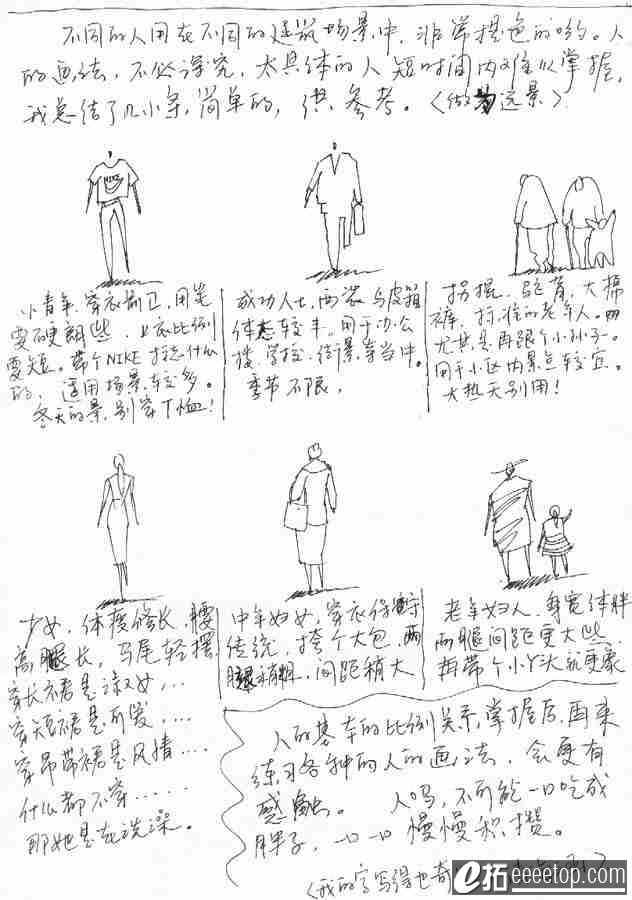 不同的人用在不同的建筑场景中，非常提色的哟。人
的画法，不必深究，太具体的人短时间内难以掌握，
我总结了几小条，简单的，供参考。〈做为远景〉
NIKE
小青年，穿衣前卫，用笔
要硬朗些，上衣比例
要短。带个NIKE标志什么
的，适用场景较多。
冬天的景，别穿T恤！
成功人士，西装与皮箱
体态较丰。用于办公
楼，学校，街景等当中。
季节不限，
拐棍，驼背，大棉
裤，标准的老年人。
尤其是再跟个小孙子。
用于小区内景点较宜。
大热天别用！
少女，体度修长，腰
高腿长，马尾轻摆
穿长裙是淑女，…
穿短裙是可爱，…
穿吊带裙是风情…
什么都不穿……
那她是在洗澡。
中年妇女，穿衣保守
传统，挎个大包，两
腿稍粗，间距稍大
老年妇人，身宽体胖
两腿间距更大些
再带个小丫头就更象
人的基本的比例关系，掌握后，再来
练习各种的人的画法，会更有
感触。 人吗，不可能一口吃成
胖子，一口一口慢慢积攒。
〈我的字写得也奇
e拓 eeeetop.com